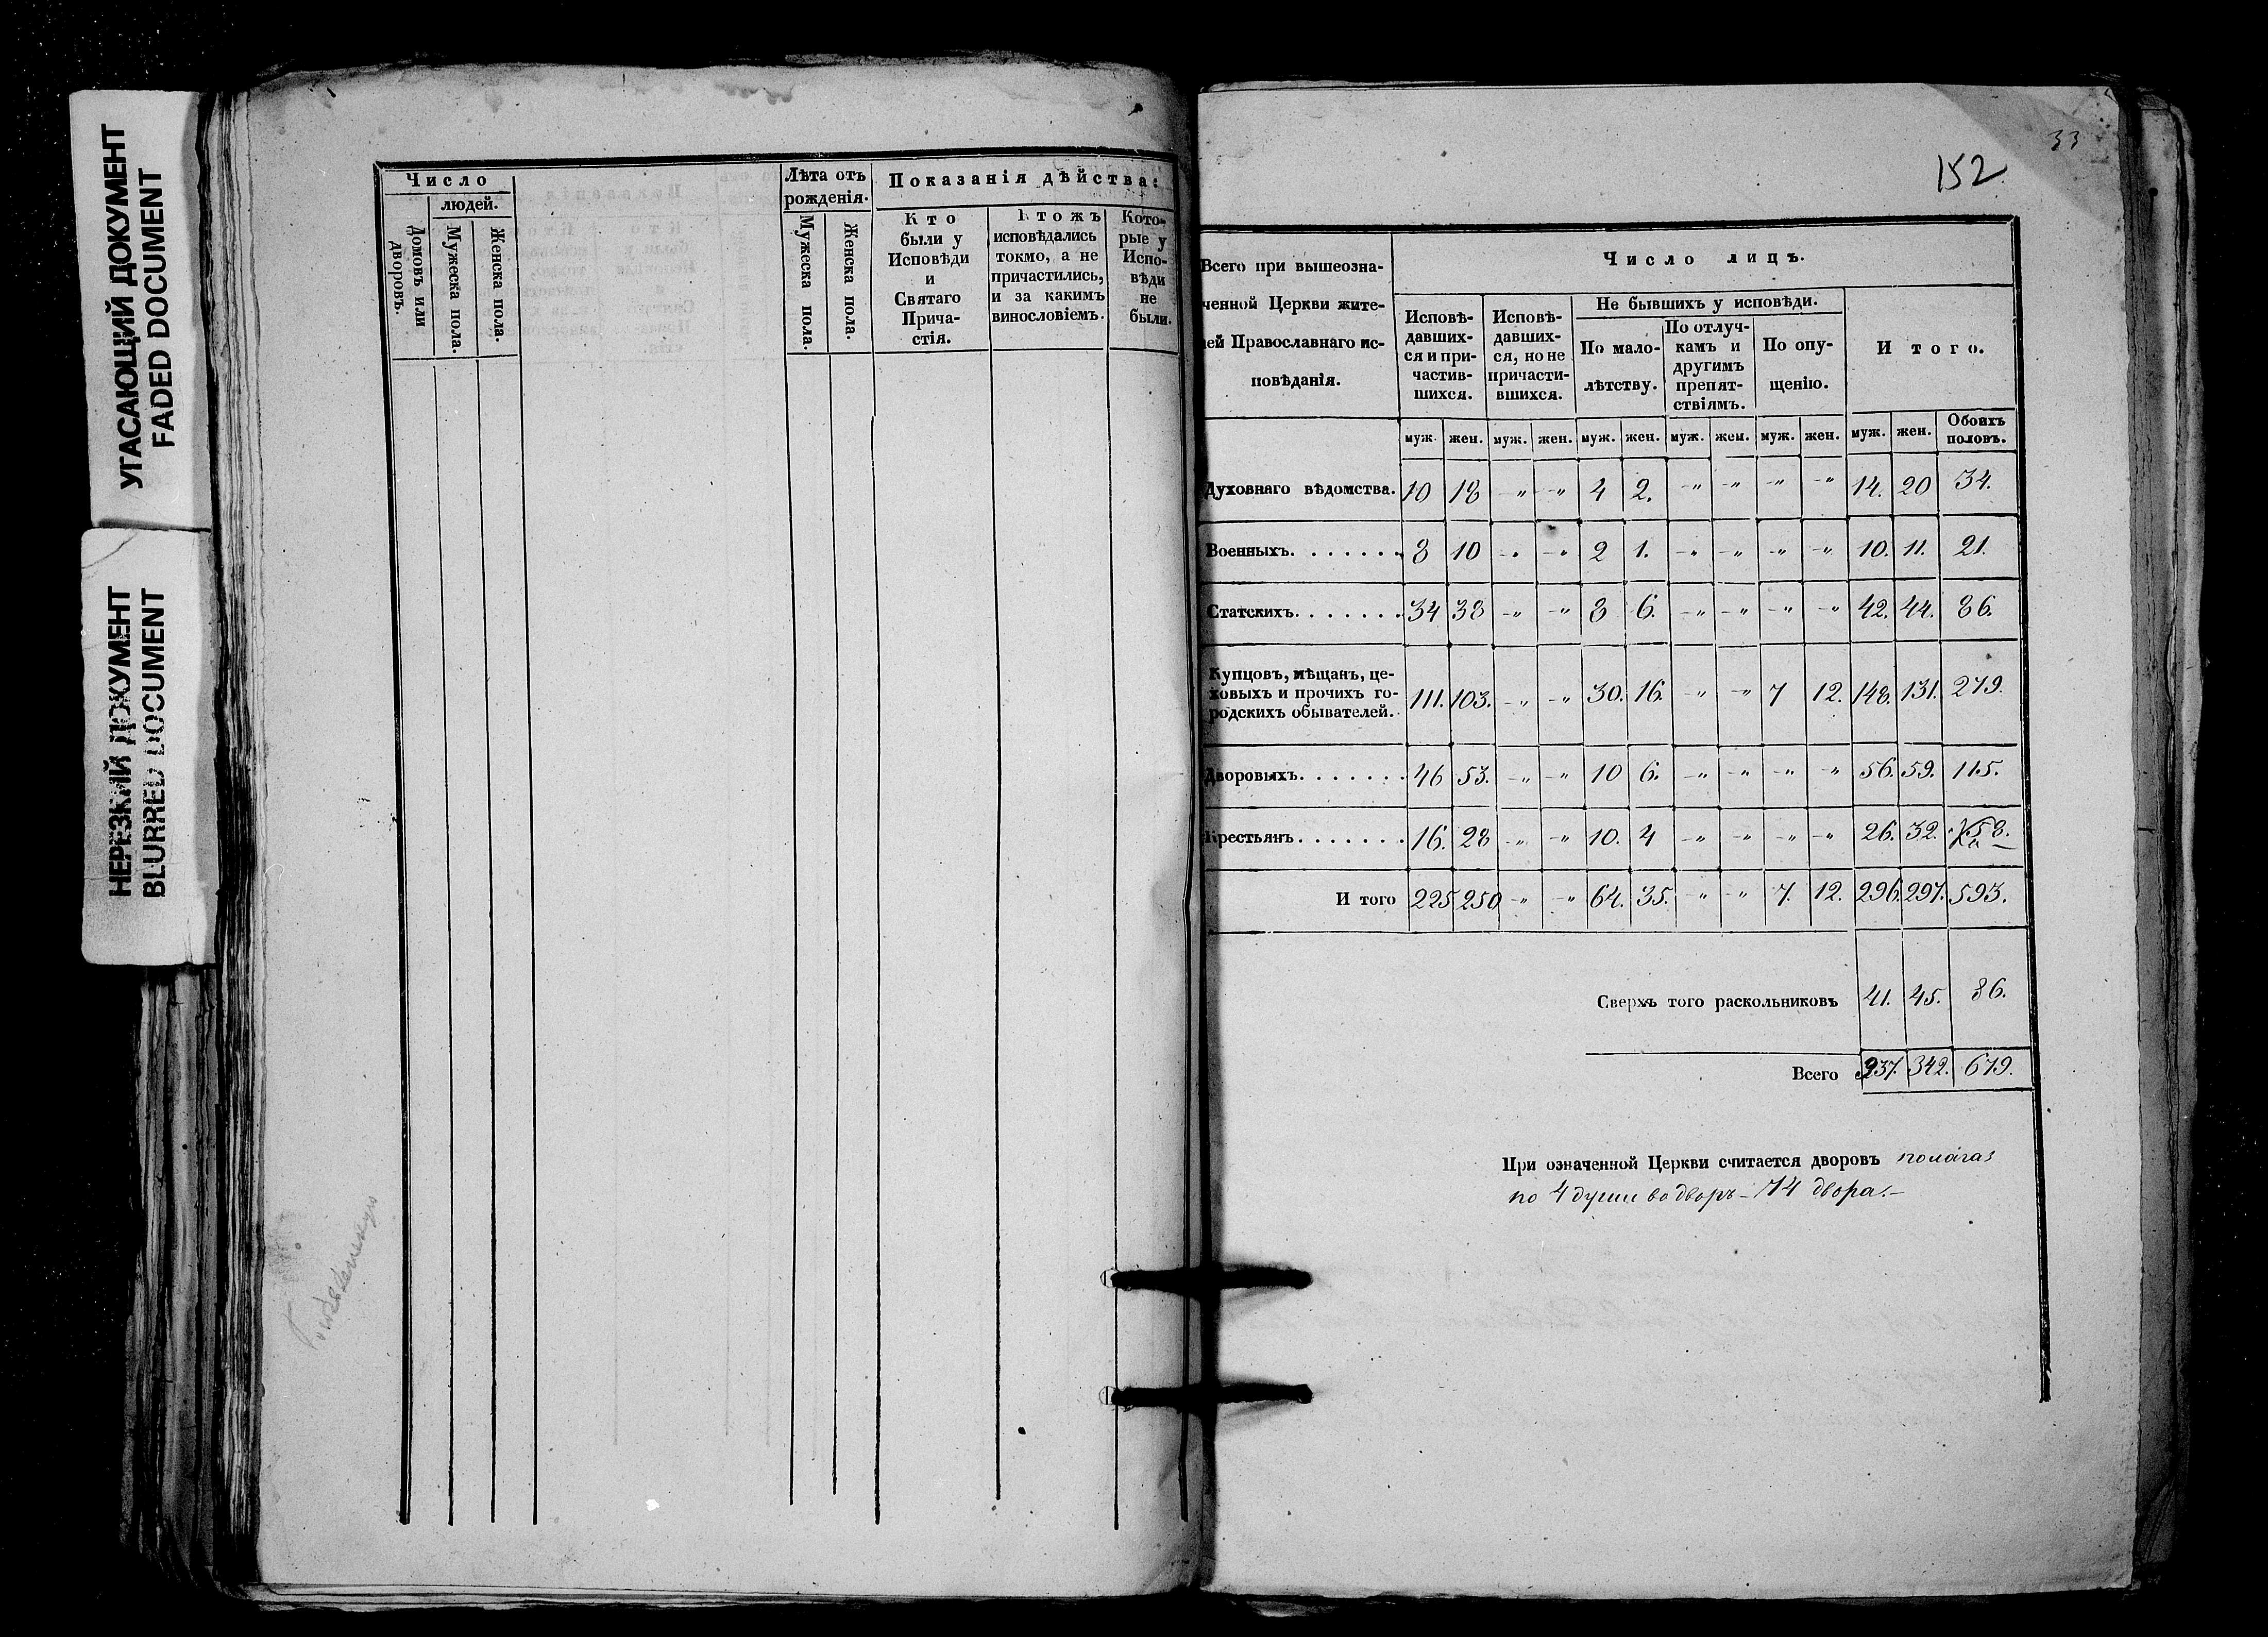 УГАСАЮЩИЙ ДОКУМЕНТ
FADED DOCUMENT
НЕРЕЗКИЙ ДОКУМЕНТ
BLURRED DOCUMENT
Число
людей.
Домовъ или дворовъ.
Мужеска пола.
Женска пола.
Лѣта отъ
рожденія.
Мужеска пола.
Женска пола.
Показанія дѣйства:
Кто
были у
Исповѣди
и
Святаго
Прича-
стія.
Ктожъ
исповѣдались
токмо, а не
причастились,
и за какимъ
винословіемъ.
Кото-
рые у
Испо-
вѣди
не
были.
33
152
Всего при вышеозна-
ченной Церкви жите-
лей Православнаго ис-
повѣданія.
Число лицъ.
Исповѣ-
давших-
ся и при-
частив-
шихся.
Исповѣ-
давших-
ся, но не
причасти-
вшихся.
Не бывшихъ у исповѣди.
По мало-
лѣтству.
По отлуч-
камъ и
другимъ
препят-
ствіямъ.
По опу-
щенію.
И того.
муж. жен. муж. жен. муж. жен. муж. жен. муж. жен. муж. жен. Обоихъ половъ.
Духовнаго вѣдомства. 10 18 -„ -„ 4 2. -„ -„ -„ -„ 14. 20 34.
Военныхъ. . . . . . . 8 10 -„ -„ 2 1. -„ -„ -„ -„ 10. 11. 21.
Статскихъ. . . . . . . 34 38 -„ -„ 8 6. -„ -„ -„ -„ 42. 44. 86.
Купцовъ, мѣщанъ, це-
ховыхъ и прочихъ го-
родскихъ обывателей. 111. 103. -„ -„ 30. 16. -„ -„ 7 12. 148. 131. 279.
Дворовыхъ. . . . . . . 46 53. -„ -„ 10 6. -„ -„ -„ -„ 56. 59. 115.
Крестьянъ . . . . . . . 16. 28 -„ -„ 10. 4 -„ -„ -„ -„ 26. 32. 58.
И того 225 250 -„ -„ 64. 35. -„ -„ 7. 12. 296. 297. 593.
Сверхъ того раскольниковъ 41. 45. 86.
Всего 337. 342. 679.
При означенной Церкви считается дворовъ полагая
по 4 души во дворъ - 74 двора.-